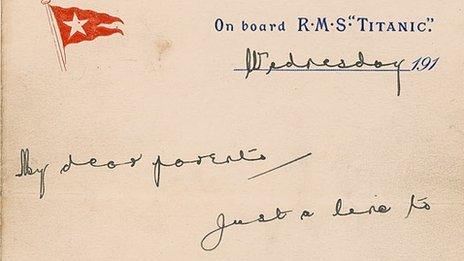 On board R·M·S "TITANIC".
Wednesday 191
My dear parents
Just a line to